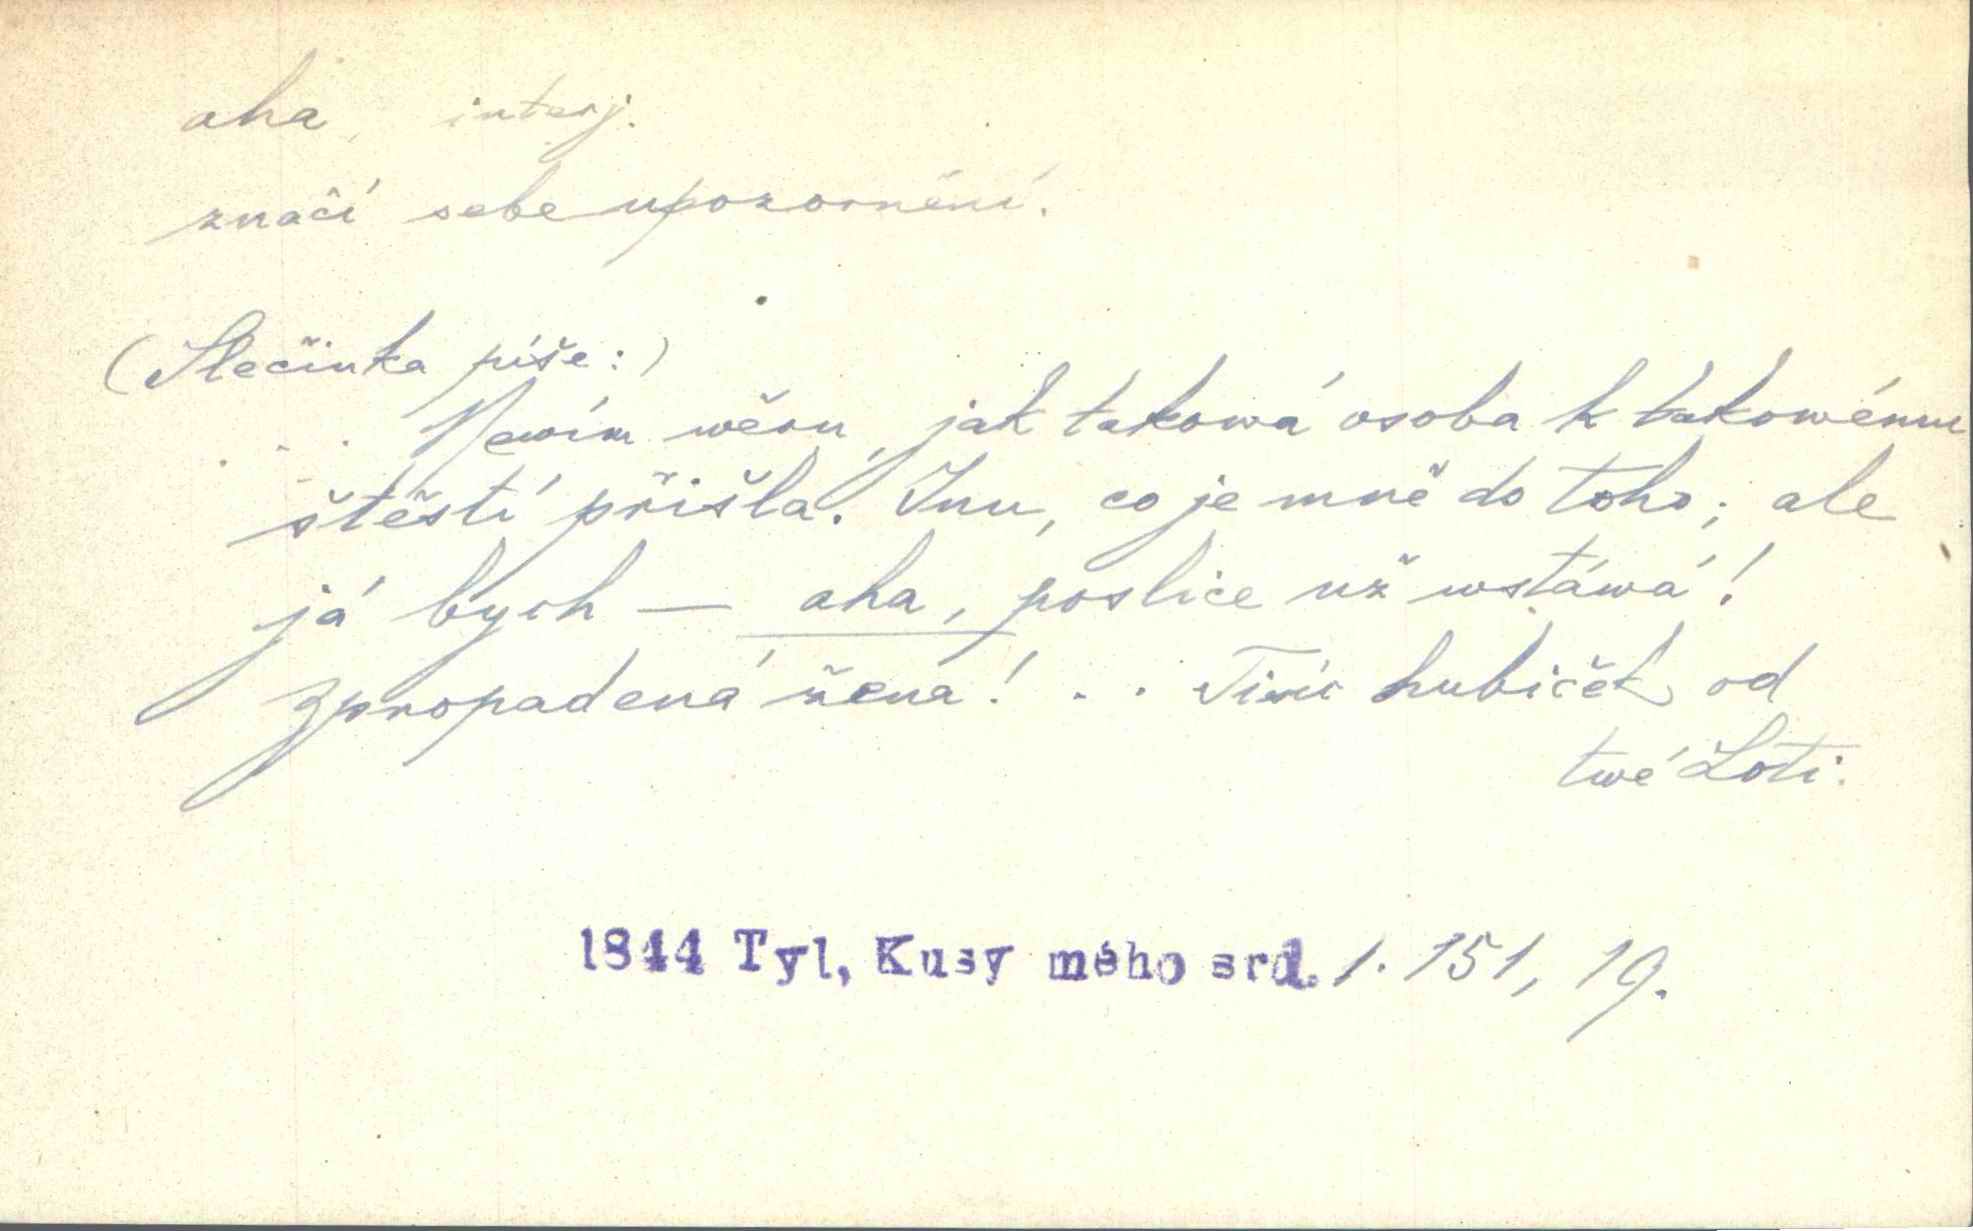 aha, interj.
značí sebeupozornění.
(Slečinka píše:)
... Newím wěru, jak taková osoba k takowému
štěstí přišla. Inu, co je mně do toho; ale
já bych — aha, poslice už wstáwá!
Zpropadená žena! .. Tisíc hubiček od
twé Loti.
1844 Tyl, Kusy mého srd. 1. 151, 19.